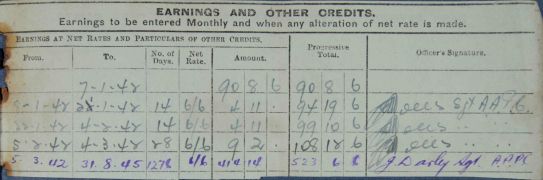 EARNINGS AND OTHER CREDITS.
Earnings to be entered Monthly and when any alteration of net rate is made.
EARNINGS AT NET RATES AND PARTICULARS OF OTHER CREDITS.
From. To. No. of Days. Net Rate. Amount. Progressive Total. Officer's Signature.
7-1-42 90 8 6 90 8 6
8-1-42 21-1-42 14 6/6 4 11 94 19 6 Sgt A.A.P.C.
22-1-42 4-2-42 14 6/6 4 11 99 10 6
5-2-42 4-3-42 28 6/6 9 2 108 12 6
5. 3. 42 31. 8. 45 1276 6/6 414 14 523 6 6 J Darby Sgt A.A.P.C